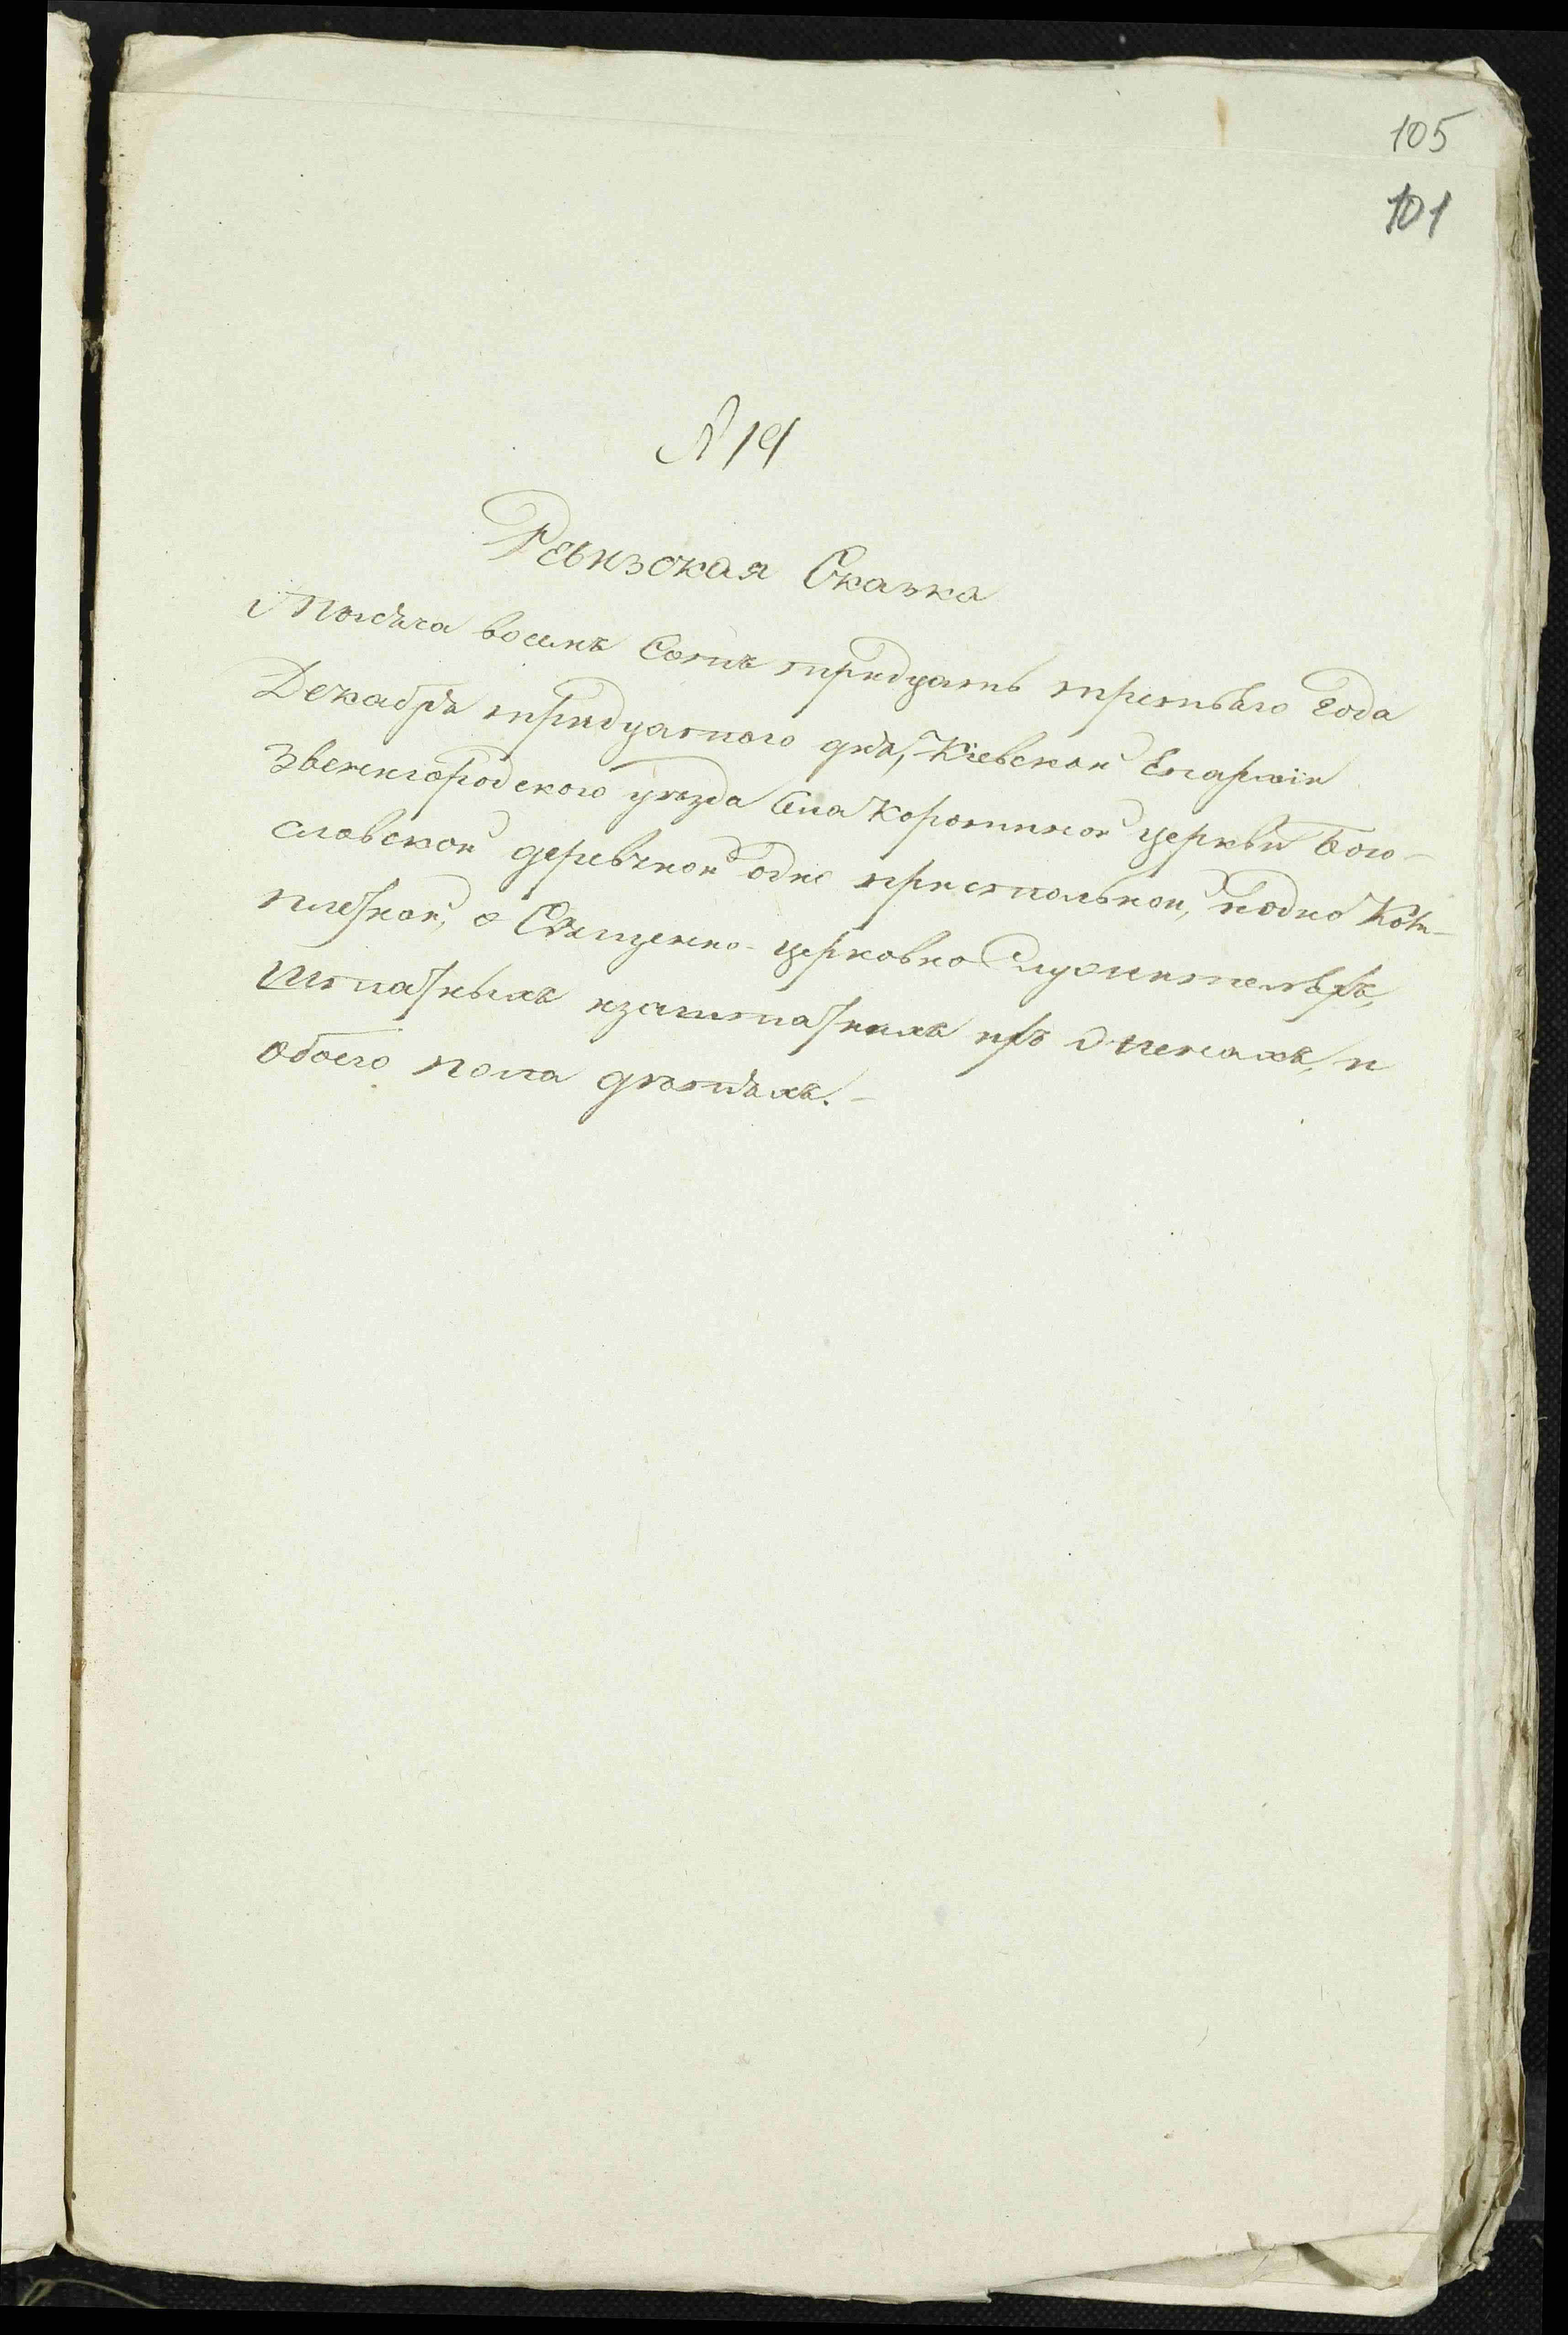 105
101
№ 19
Ревизская Сказка
Тысяча восемъ Сотъ тридцать третьяго Года
Декабря тридцатого дня, Кіевской Епархіи
Звенигородского уѣзда Села Коротиной церкви Бого-
словской деревяной одно престольной, и одно Ком-
плетной, о Священно-церковно Служителяхъ,
Штатныхъ и заштатныхъ ихъ Женахъ, и
обоего пола дѣтяхъ.-